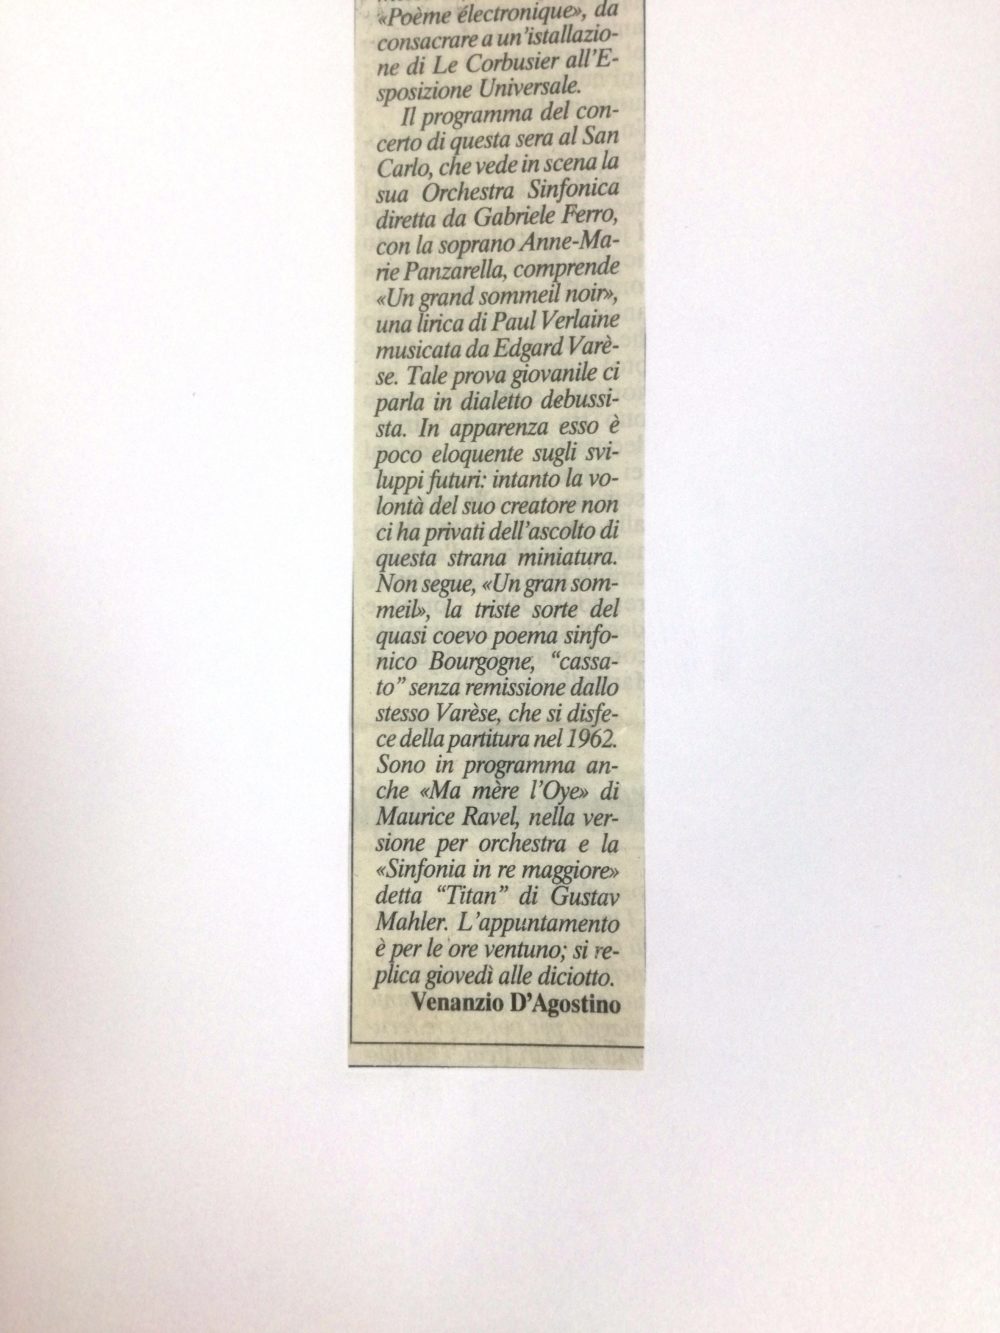 «Poème électronique», da
consacrare a un'istallazio-
ne di Le Corbusier all'E-
sposizione Universale.
Il programma del con-
certo di questa sera al San
Carlo, che vede in scena la
sua Orchestra Sinfonica
diretta da Gabriele Ferro,
con la soprano Anne-Ma-
rie Panzarella, comprende
«Un grand sommeil noir»,
una lirica di Paul Verlaine
musicata da Edgard Varè-
se. Tale prova giovanile ci
parla in dialetto debussi-
sta. In apparenza esso è
poco eloquente sugli svi-
luppi futuri: intanto la vo-
lontà del suo creatore non
ci ha privati dell'ascolto di
questa strana miniatura.
Non segue, «Un gran som-
meil», la triste sorte del
quasi coevo poema sinfo-
nico Bourgogne, "cassa-
to" senza remissione dallo
stesso Varèse, che si disfe-
ce della partitura nel 1962.
Sono in programma an-
che «Ma mère l'Oye» di
Maurice Ravel, nella ver-
sione per orchestra e la
«Sinfonia in re maggiore»
detta "Titan" di Gustav
Mahler. L'appuntamento
è per le ore ventuno; si re-
plica giovedì alle diciotto.
Venanzio D'Agostino